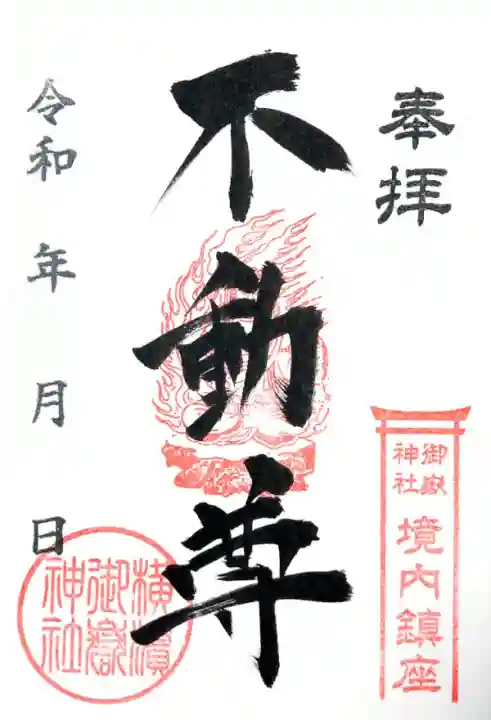 奉拝
不動尊
令和 年 月 日
御嶽神社
境内鎮座
横濱御嶽神社